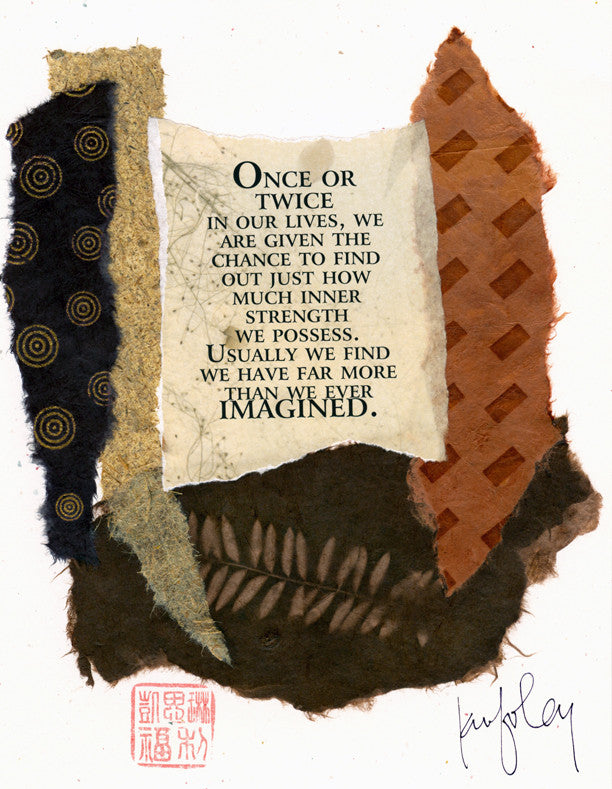 ONCE OR
TWICE
IN OUR LIVES, WE
ARE GIVEN THE
CHANCE TO FIND
OUT JUST HOW
MUCH INNER
STRENGTH
WE POSSESS.
USUALLY WE FIND
WE HAVE FAR MORE
THAN WE EVER
IMAGINED.
凱思琳
福利